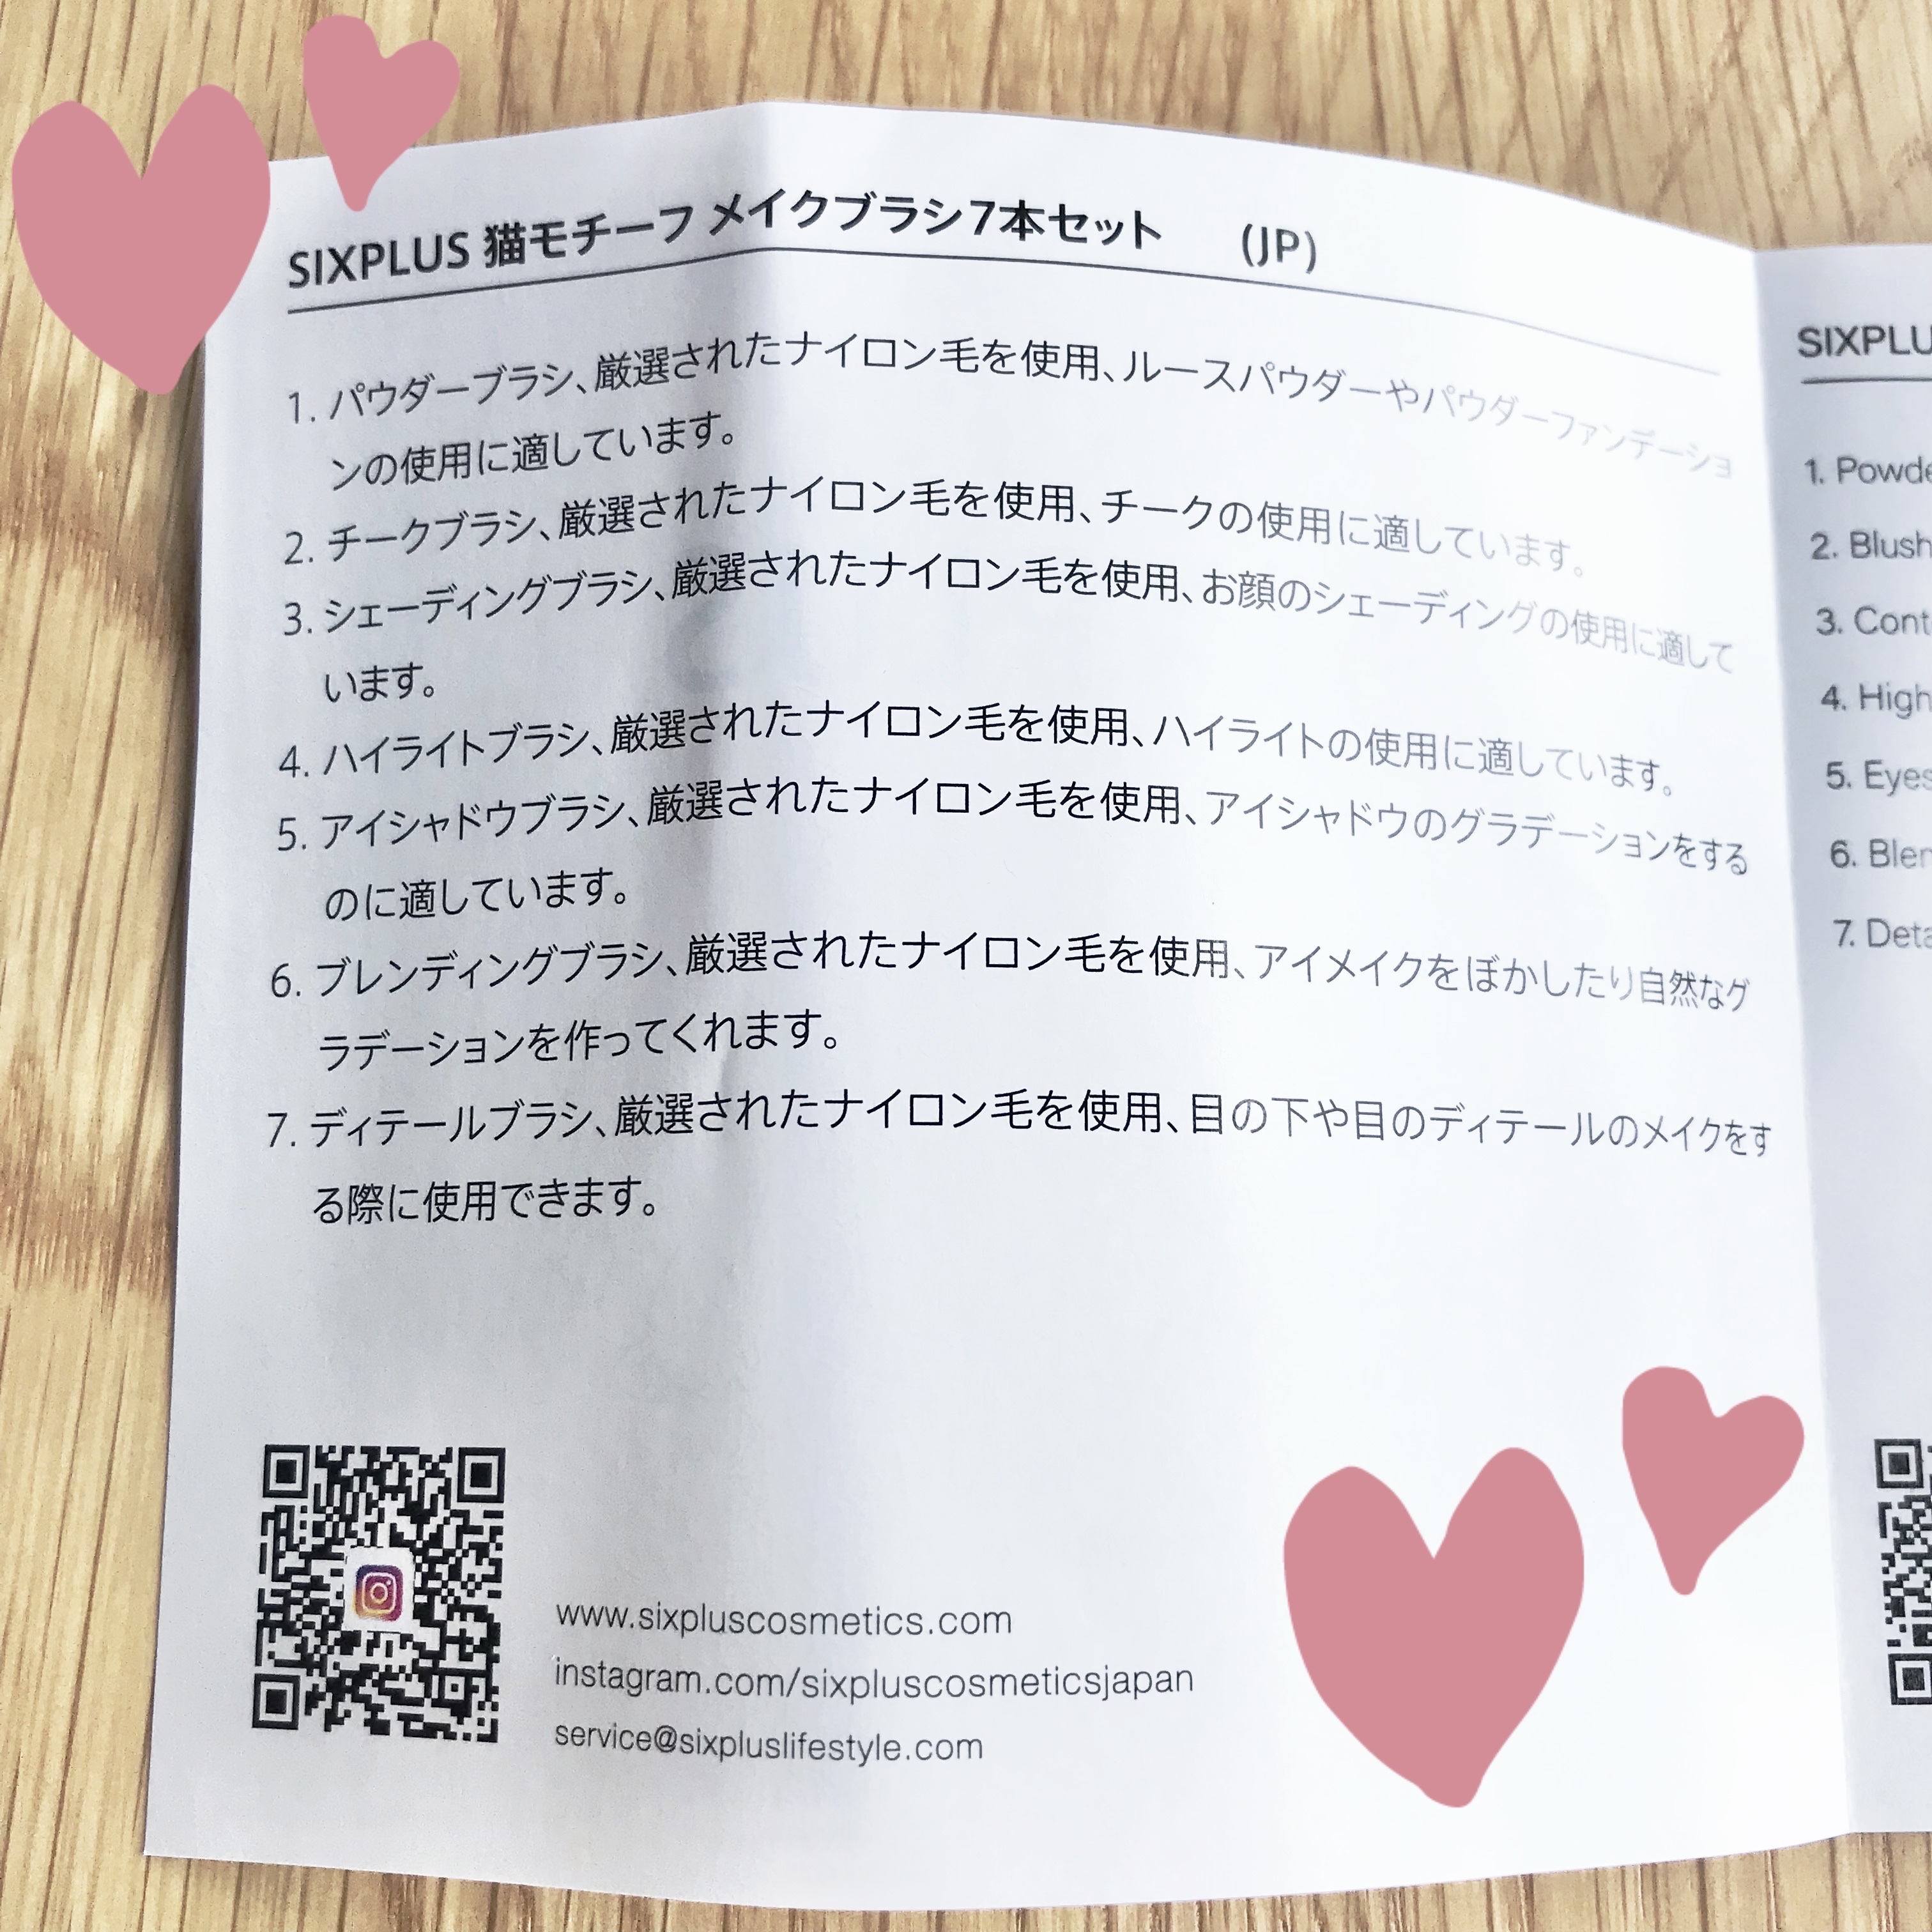 SIXPLUS 猫モチーフ メイクブラシ7本セット (JP)
1. パウダーブラシ、厳選されたナイロン毛を使用、ルースパウダーやパウダーファンデーショ
ンの使用に適しています。
2. チークブラシ、厳選されたナイロン毛を使用、チークの使用に適しています。
3. シェーディングブラシ、厳選されたナイロン毛を使用、お顔のシェーディングの使用に適して
います。
4. ハイライトブラシ、厳選されたナイロン毛を使用、ハイライトの使用に適しています。
5. アイシャドウブラシ、厳選されたナイロン毛を使用、アイシャドウのグラデーションをする
のに適しています。
6. ブレンディングブラシ、厳選されたナイロン毛を使用、アイメイクをぼかしたり自然なグ
ラデーションを作ってくれます。
7. ディテールブラシ、厳選されたナイロン毛を使用、目の下や目のディテールのメイクをす
る際に使用できます。
www.sixpluscosmetics.com
instagram.com/sixpluscosmeticsjapan
service@sixpluslifestyle.com
SIXPLU
1. Powde
2. Blush
3. Cont
4. High
5. Eyes
6. Blen
7. Deta